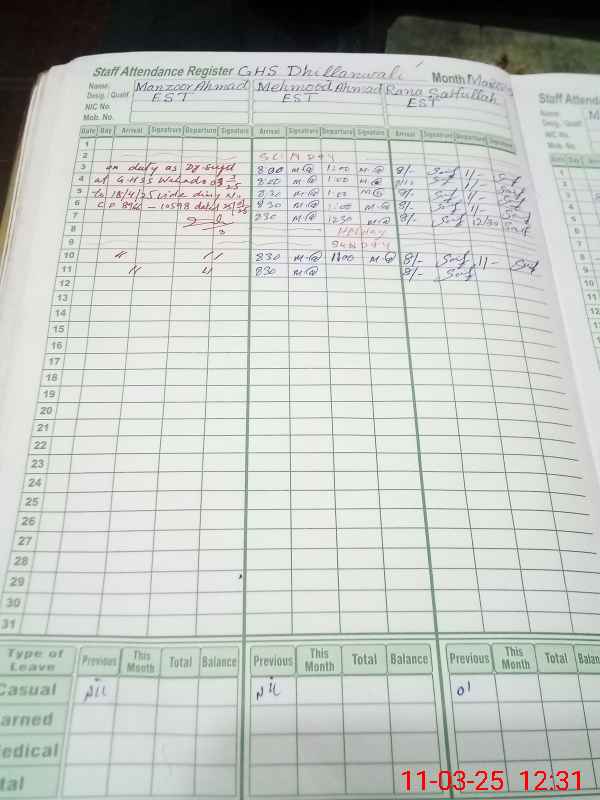 Staff Attendance Register GHS Dhillanwali Month March
Staff Attend
Name: Manzoor Ahmad Mehmood Ahmad Rana Saifullah
Name
Desig. / Qualif. EST EST EST
Desig.
NIC No.
NIC N
Mob. No.
Mob.
Date Day Arrival Signature Departure Signature Arrival Signature Departure Signature Arrival Signature Departure Signature
1
2 SUNDAY
3 on duty as Dy. Supdt 800 M@ 1200 M@ 8/- Saif 1/- Saif
4 at GHSS 800 M@ 1:00 M@ Saif 1/- Saif
5 to 18/4/25 vide diary No 830 M@ 1:00 M@ 8/- Saif 1/- Saif
6 830 M@ 1:00 M@ 8/- Saif 1/- Saif
7 830 M@ 1230 M@ 8/- Saif 12/30 Saif
8
9 SUNDAY
10 " " 830 M@ 1100 M@ 8/- Saif 11/- Saif
11 " " 830 M@ 8/- Saif
12
13
14
15
16
17
18
19
20
21
22
23
24
25
26
27
28
29
30
31
Type of Leave Previous This Month Total Balance Previous This Month Total Balance Previous This Month Total Balan
Casual Nil Nil 01
arned
edical
tal
11-03-25 12:31